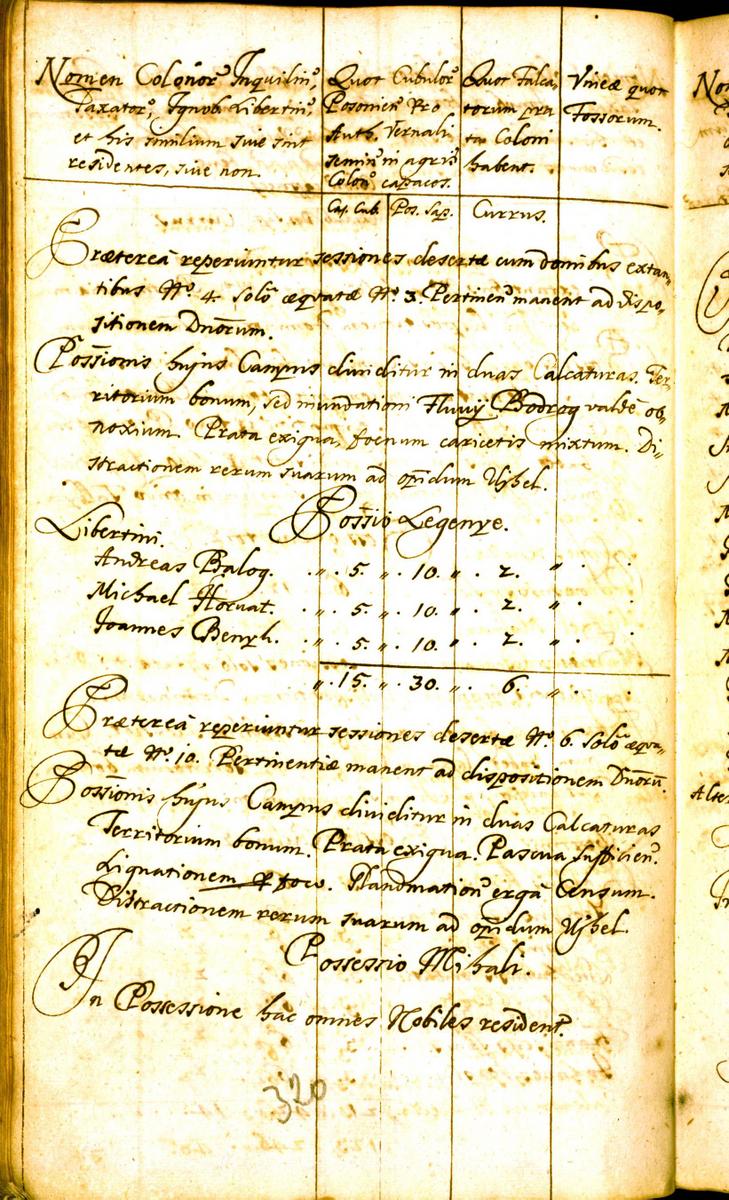 Nomen Colonor. Inquilin.
Taxator., Ignob. Libertin.
et his similium sive sint
residentes, sive non.
Quot Cubulor.
Posonien. Pro
Auth. Vernali
semin. in agris
Colon. capaces.
Quot Falca-
torum pra-
ta Coloni
habent.
Vineæ quot
Fossorum.
Cap. Cub. Pos. Sap. Currus.
Prætereà reperiuntur sessiones desertæ cum domibus extan-
tibus No. 4 solo æquatæ No. 3. Pertinen. manent ad dispo-
sitionem Dnorum.
Possionis hujus Campus dividitur in duas Calcaturas. Ter-
ritorium bonum, sed inundationi Fluvÿ Bodrog valdè ob-
noxium. Prata exigua, foenum caricetis mixtum. Di-
stractionem rerum suarum ad opidum Ujhel.
Possio Legenye.
Libertini.
Andreas Balog. . „ . 5. „ . 10. „ . 2. „ . .
Michael Horvat. . „ . 5. „ . 10. „ . 2. „ . .
Joannes Benyh. . „ . 5. „ . 10. „ . 2. „ . .
„ . 15. „ . 30. „ . 6. „ . .
Prætereà reperiuntur sessiones desertæ No. 6. solo æqua-
tæ No. 10. Pertinentiæ manent ad dispositionem Dnorum.
Possionis hujus Campus dividitur in duas Calcaturas
Territorium bonum. Prata exigua. Pascua sufficien.
Lignationem foco. Glandination. ergà Censum.
Distractionem rerum suarum ad opidum Ujhel.
Possessio Mihali.
In Possessione hac omnes Nobiles resident.
320